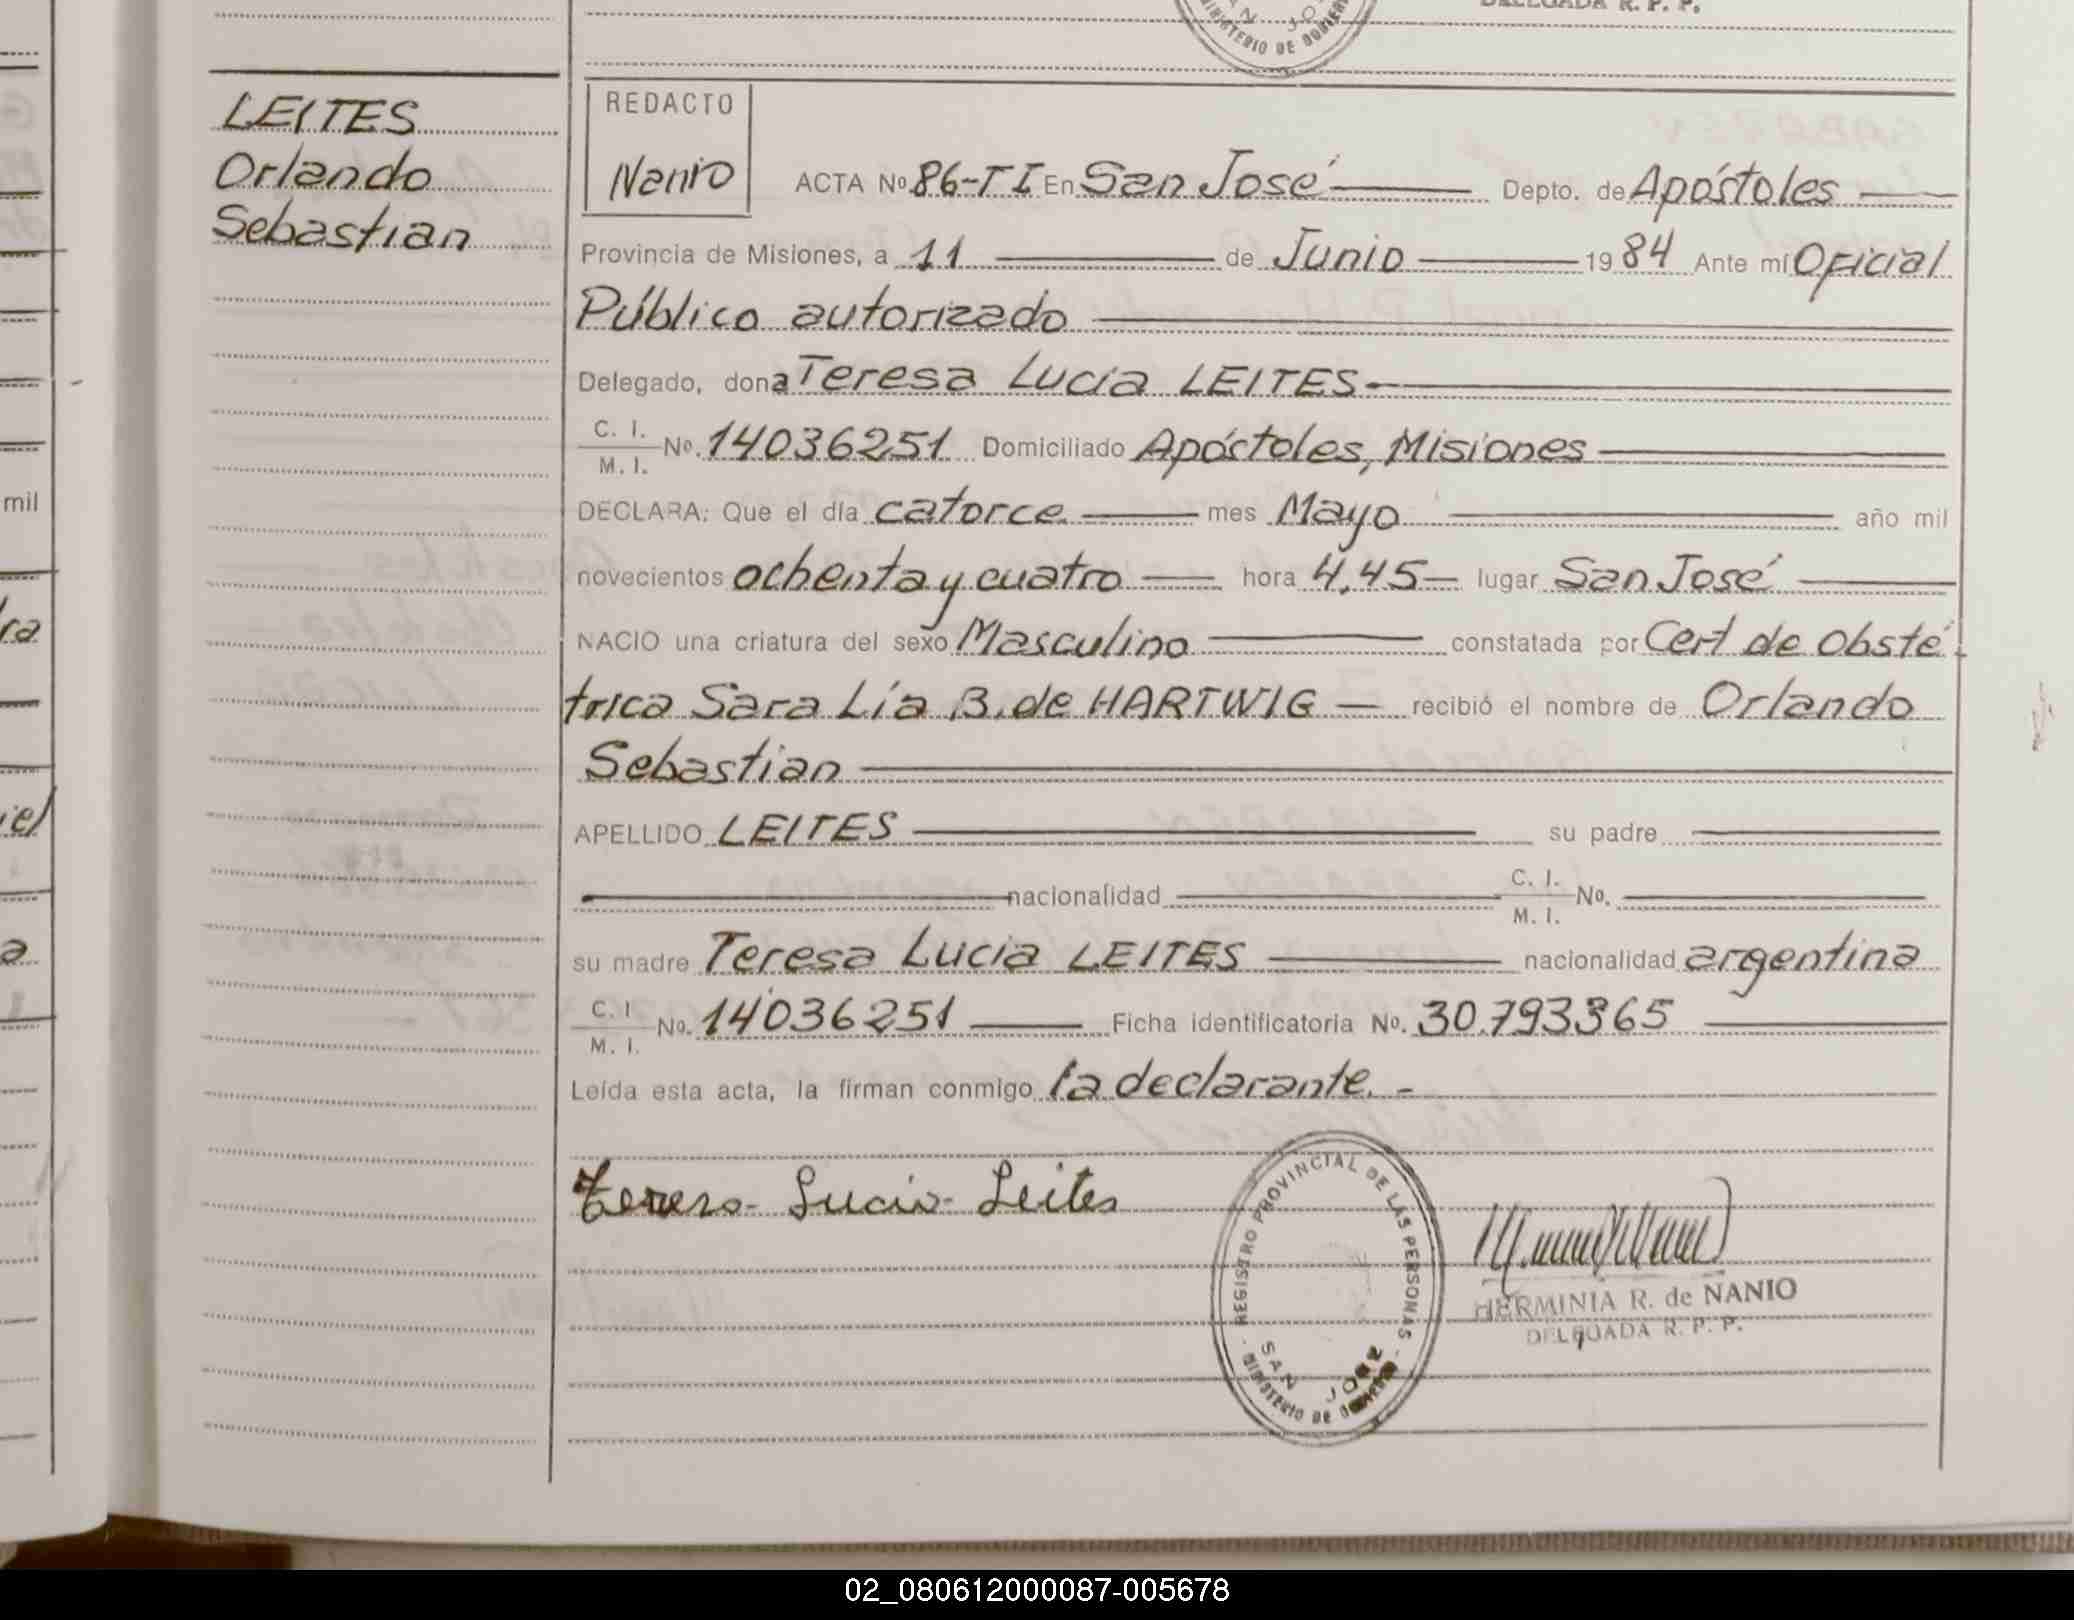 LEITES
Orlando
Sebastian
SAN JOSE
MINISTERIO DE GOBIERNO
DELEGADA R. P. P.
REDACTO
Nanio
ACTA No. 86-TI En San José Depto. de Apóstoles
Provincia de Misiones, a 11 de Junio 1984 Ante mí Oficial
Público autorizado
Delegado, dona Teresa Lucia LEITES
C. I.
M. I. No. 14036251 Domiciliado Apóstoles, Misiones
DECLARA: Que el día catorce mes Mayo año mil
novecientos ochenta y cuatro hora 4,45 lugar San José
NACIO una criatura del sexo Masculino constatada por Cert de Obsté-
trica Sara Lía B. de HARTWIG recibió el nombre de Orlando
Sebastian
APELLIDO LEITES su padre
nacionalidad C. I.
M. I. No.
su madre Teresa Lucia LEITES nacionalidad argentina
C. I
M. I. No. 14036251 Ficha identificatoria No. 30.793365
Leída esta acta, la firman conmigo la declarante.-
Teresa Lucia Leites
REGISTRO PROVINCIAL DE LAS PERSONAS
SAN JOSE
MINISTERIO DE GOBIERNO
HERMINIA R. de NANIO
DELEGADA R. P. P.
mil
02_080612000087-005678